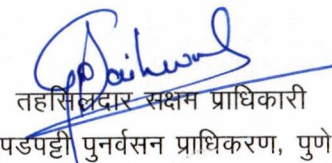 तहसिलदार सक्षम प्राधिकारी
पडपट्टी पुनर्वसन प्राधिकरण, पुणे